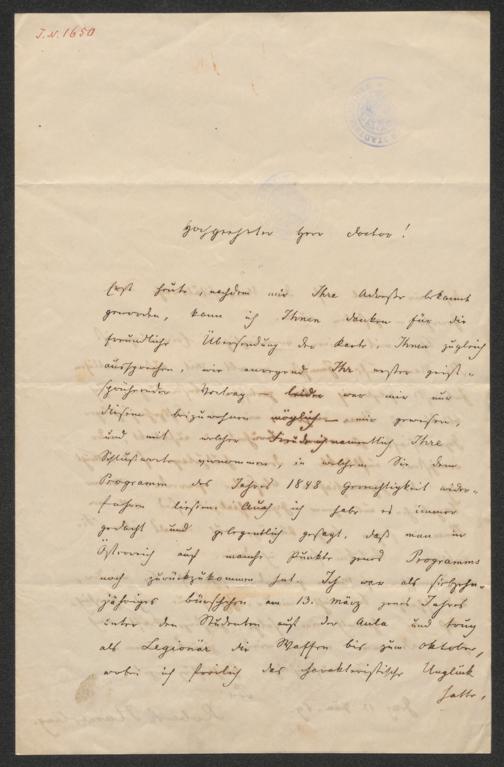 J.N. 1650
Hochgeehrter Herr Doctor!
Erst heute, nachdem mir Ihre Adresse bekannt
geworden, kann ich Ihnen danken für die
freundliche Übersendung der Karte, Ihnen zugleich
aussprechen, wie anregend Ihr erster geist-
sprühender Vortrag – leider war mir nur
diesem beizuwohnen möglich – mir gewesen,
und mit welcher Freude ich namentlich Ihre
Schlußworte vernommen, in welchen Sie dem
Programm des Jahres 1848 Gerechtigkeit wider-
fahren liessen. Auch ich habe es immer
gedacht und gelegentlich gesagt, daß man in
Österreich auf manche Punkte jenes Programms
noch zurückzukommen hat. Ich war als siebzehn-
jähriges Bürschchen am 13. März jenes Jahres
unter den Studenten auf der Aula und trug
als Legionär die Waffen bis zum Oktober,
wobei ich freilich das charakteristische Unglück
hatte,